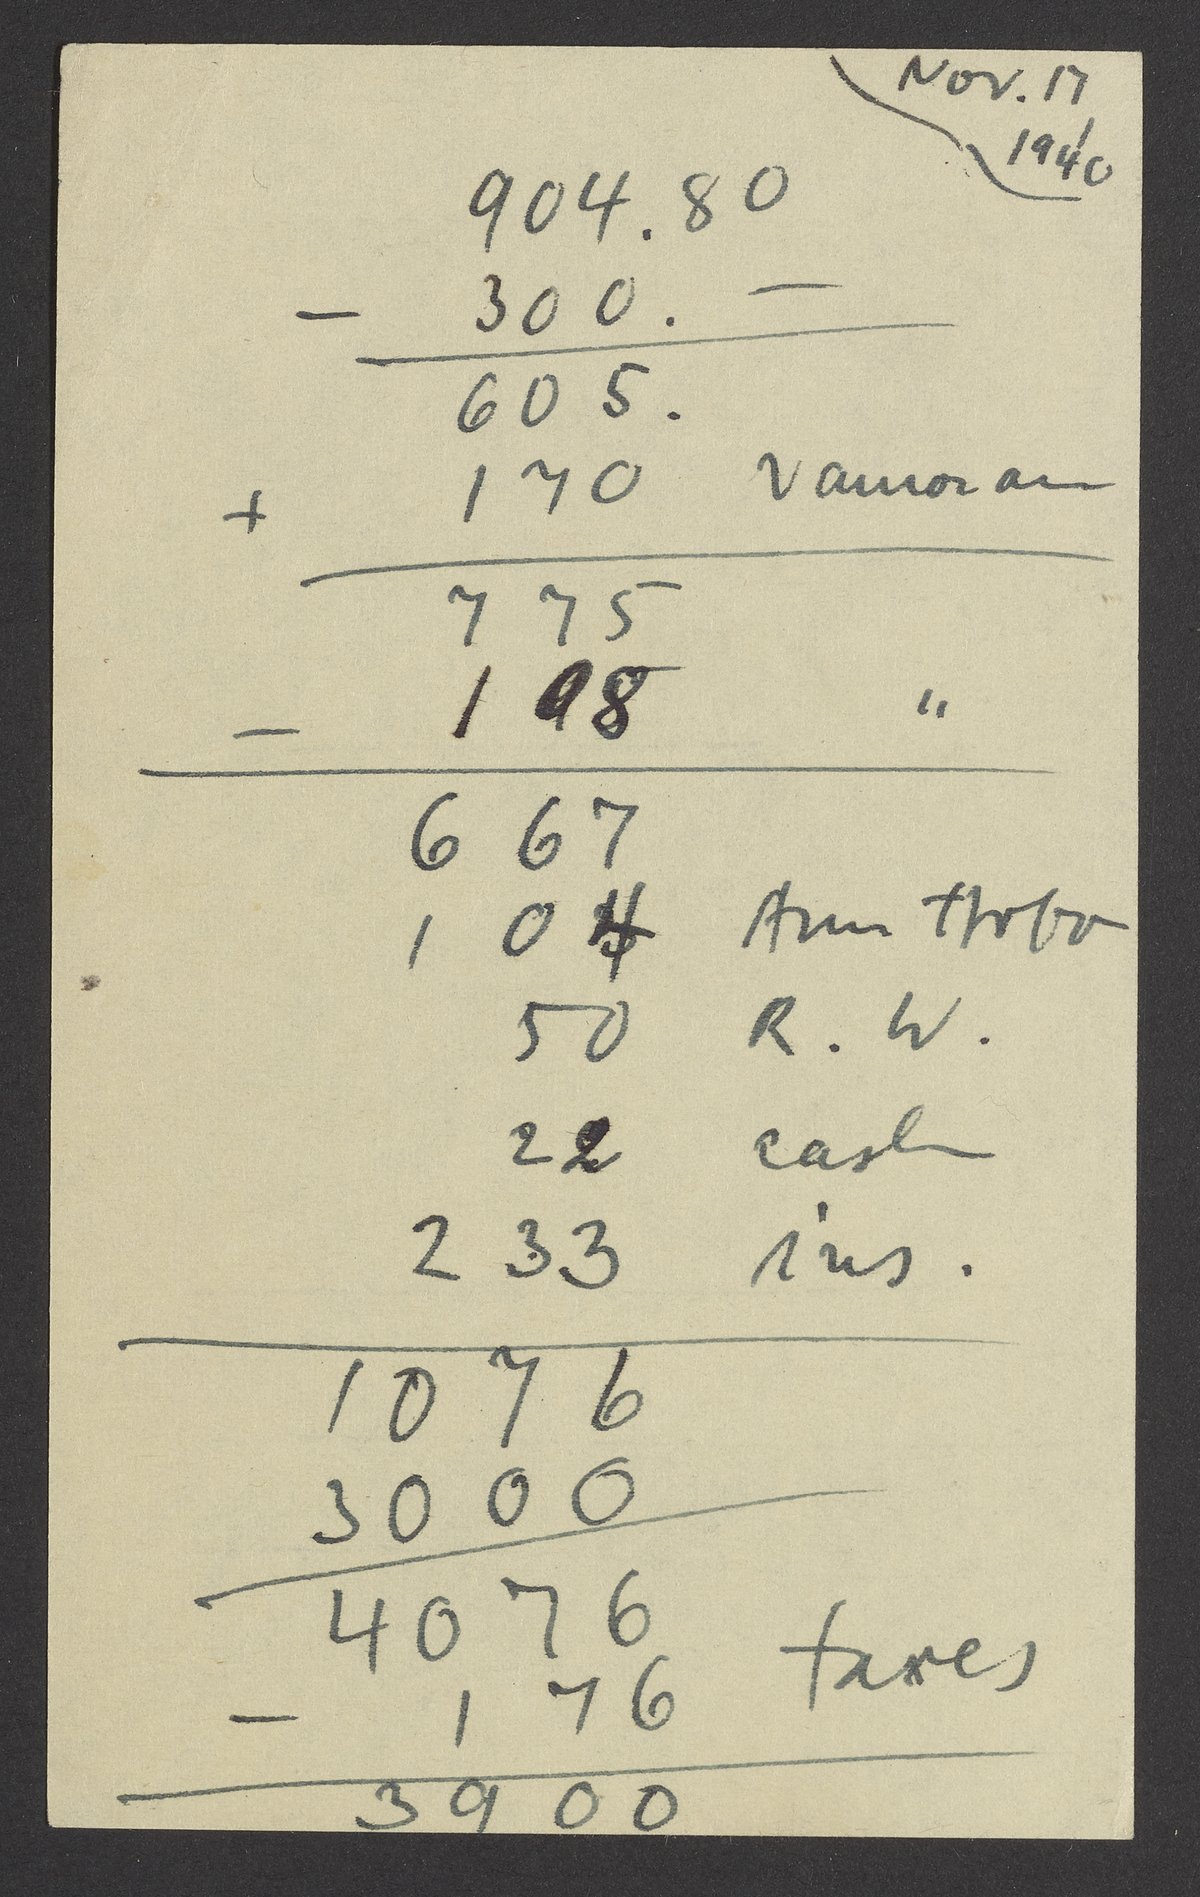 Nov. 17
1940
904.80
- 300. —
605.
+ 170
775
- 198 "
667
104 Ann Arbor
50 R. W.
22 cash
233 ins.
1076
3000
4076
- 176 taxes
3900